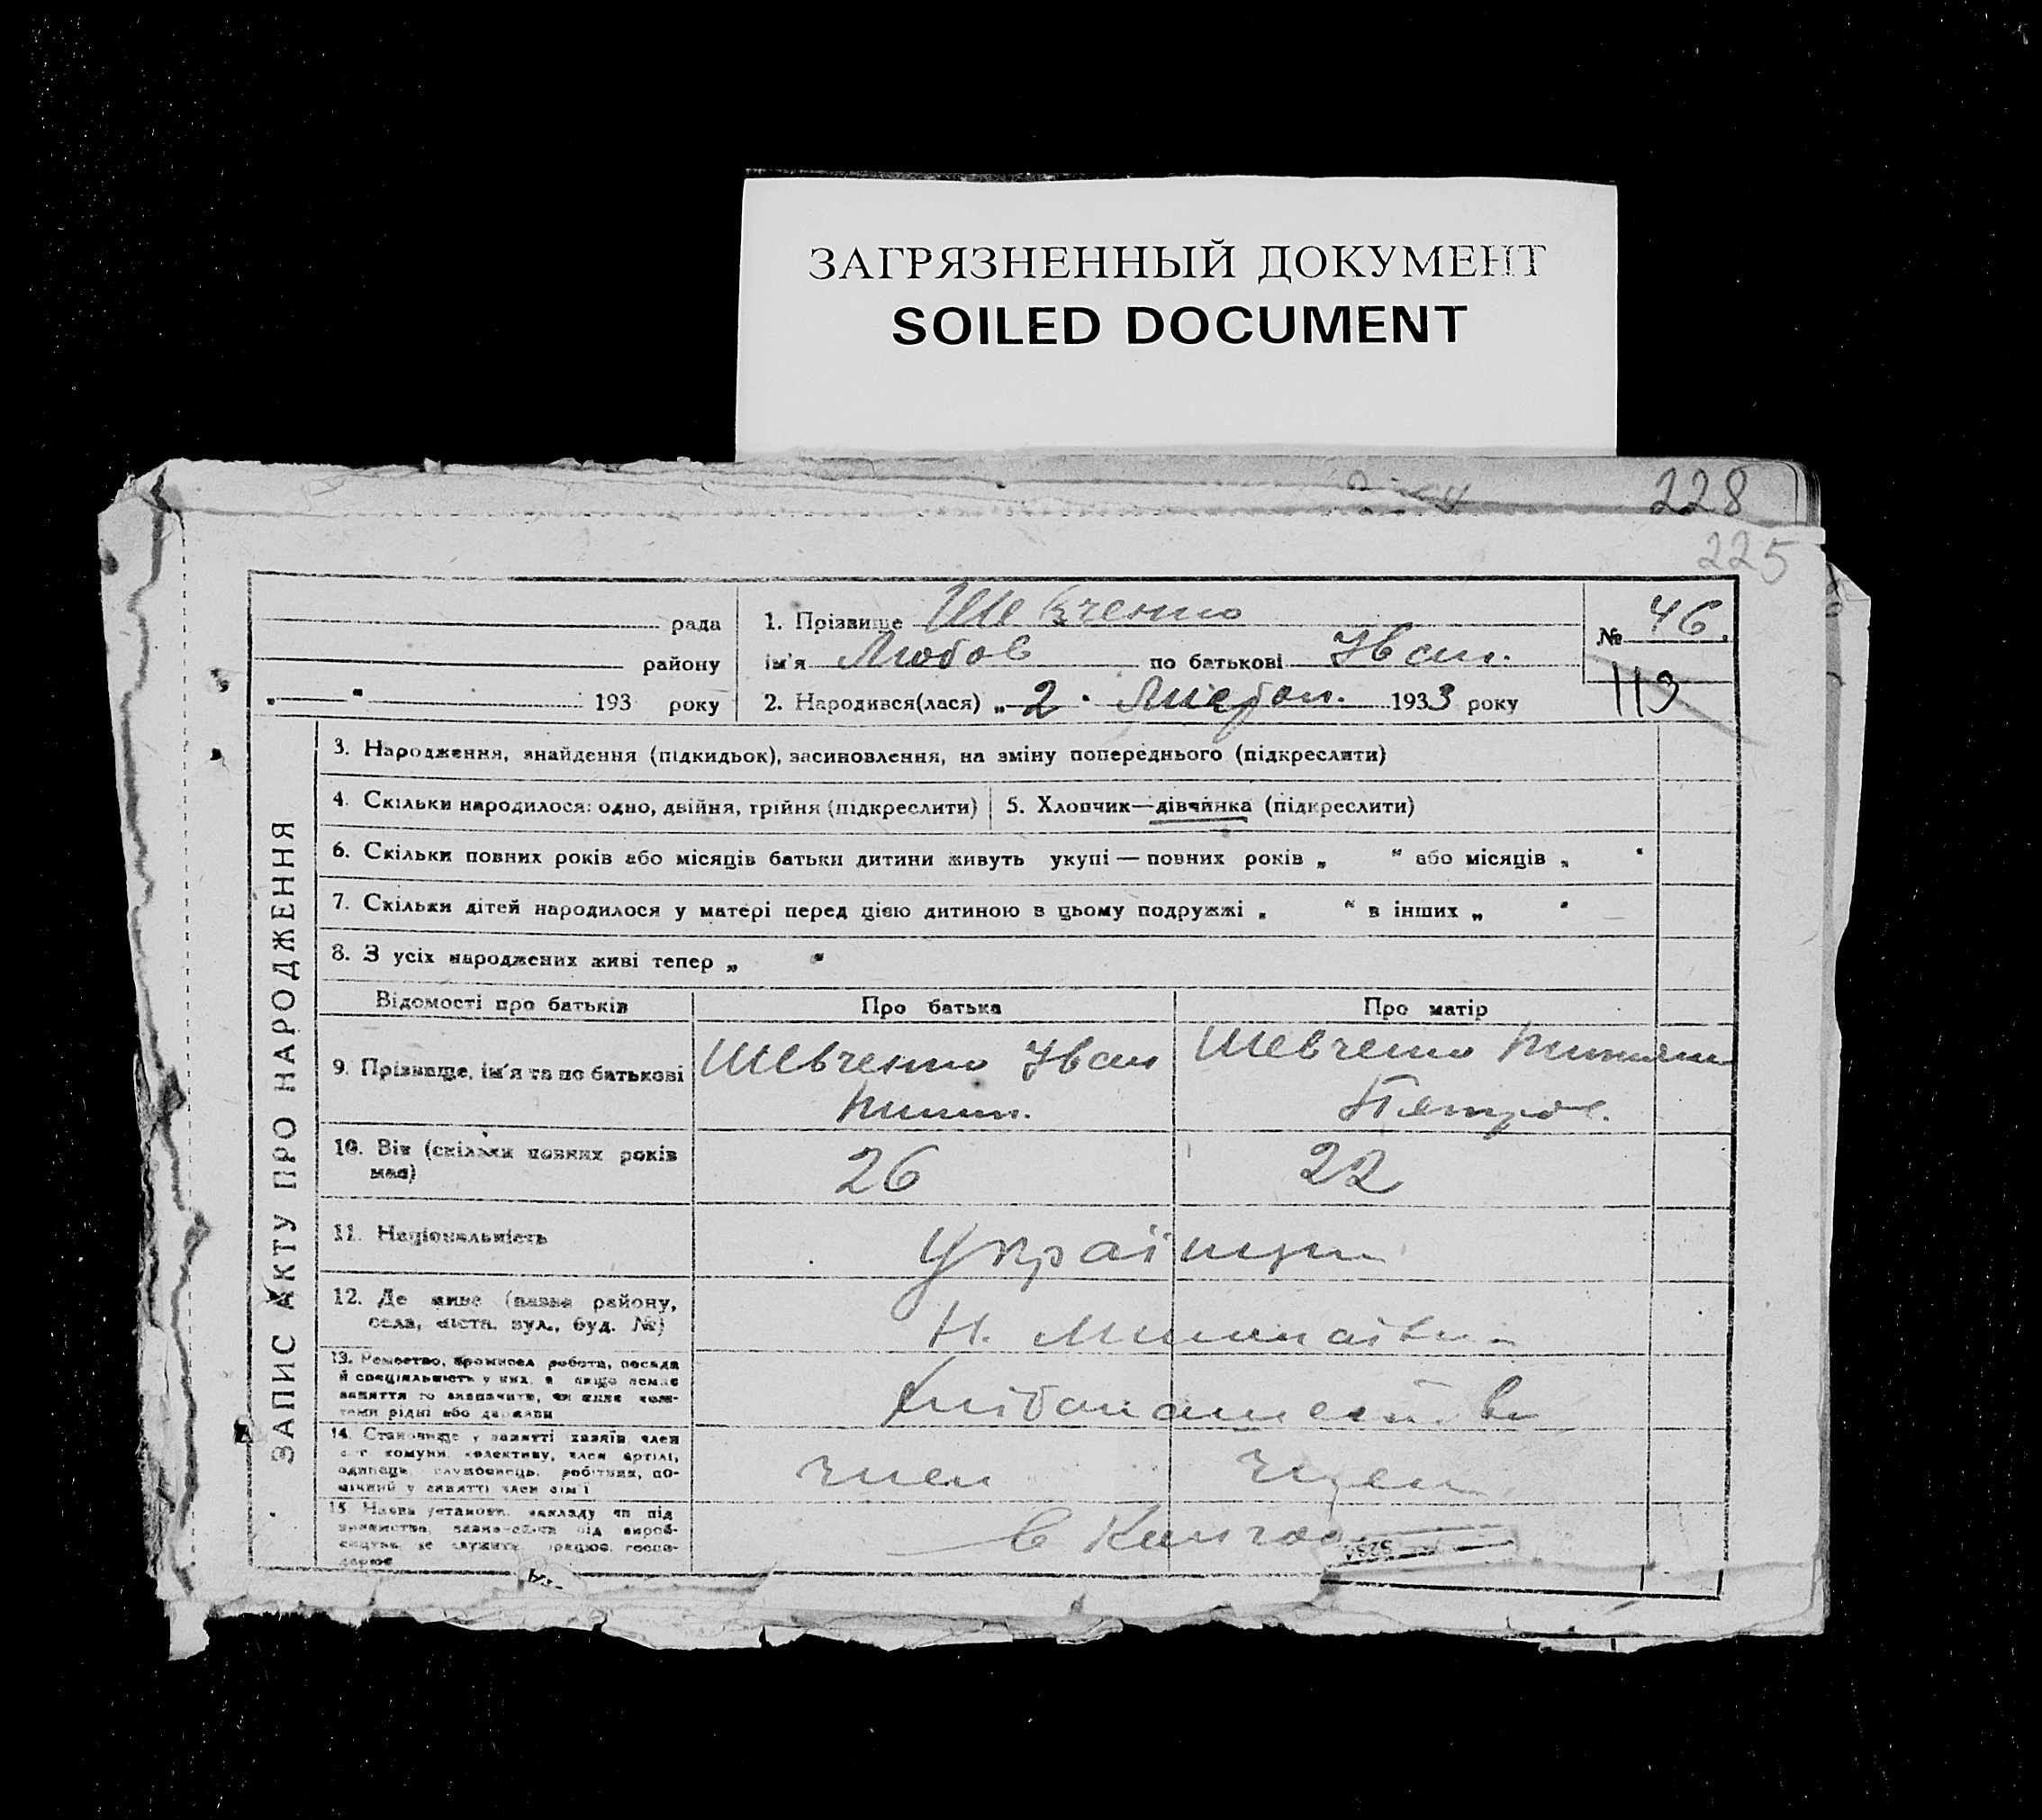 ЗАГРЯЗНЕННЫЙ ДОКУМЕНТ
SOILED DOCUMENT
228
225
рада
району
193 року
1. Прізвище Шевченко
ім'я Любов по батькові Іван.
2. Народився(лася) „2" Листоп. 1933 року
№ 46.
113
ЗАПИС АКТУ ПРО НАРОДЖЕННЯ
3. Народження, знайдення (підкидьок), засиновлення, на зміну попереднього (підкреслити)
4. Скільки народилося: одно, двійня, трійня (підкреслити) 5. Хлопчик—дівчинка (підкреслити)
6. Скільки повних років або місяців батьки дитини живуть укупі — повних років „ " або місяців „ "
7. Скільки дітей народилося у матері перед цією дитиною в цьому подружжі „ " в інших „ "
8. З усіх народжених живі тепер „ "
Відомості про батьків Про батька Про матір
9. Прізвище, ім'я та по батькові Шевченко Іван Шевченко
Петров.
10. Вік (скільки повних років
має) 26 22
11. Національність Українци
12. Де живе (назва району,
села, міста, вул., буд. №) Н.
13. Ремество, промисел робота, посада
й спеціяльність у них, а якщо немає
заняття то визначити, чи живе кош-
тами рідні або держави
14. Становище у занятті хазяїн, член
с.-г. комуни, колективу, член артілі,
одинець, службовець, робітник, по-
мічний у занятті член сім'ї член член
15. Назва установи, закладу чи під
приємства, де служить, працює, госпо-
дарює в